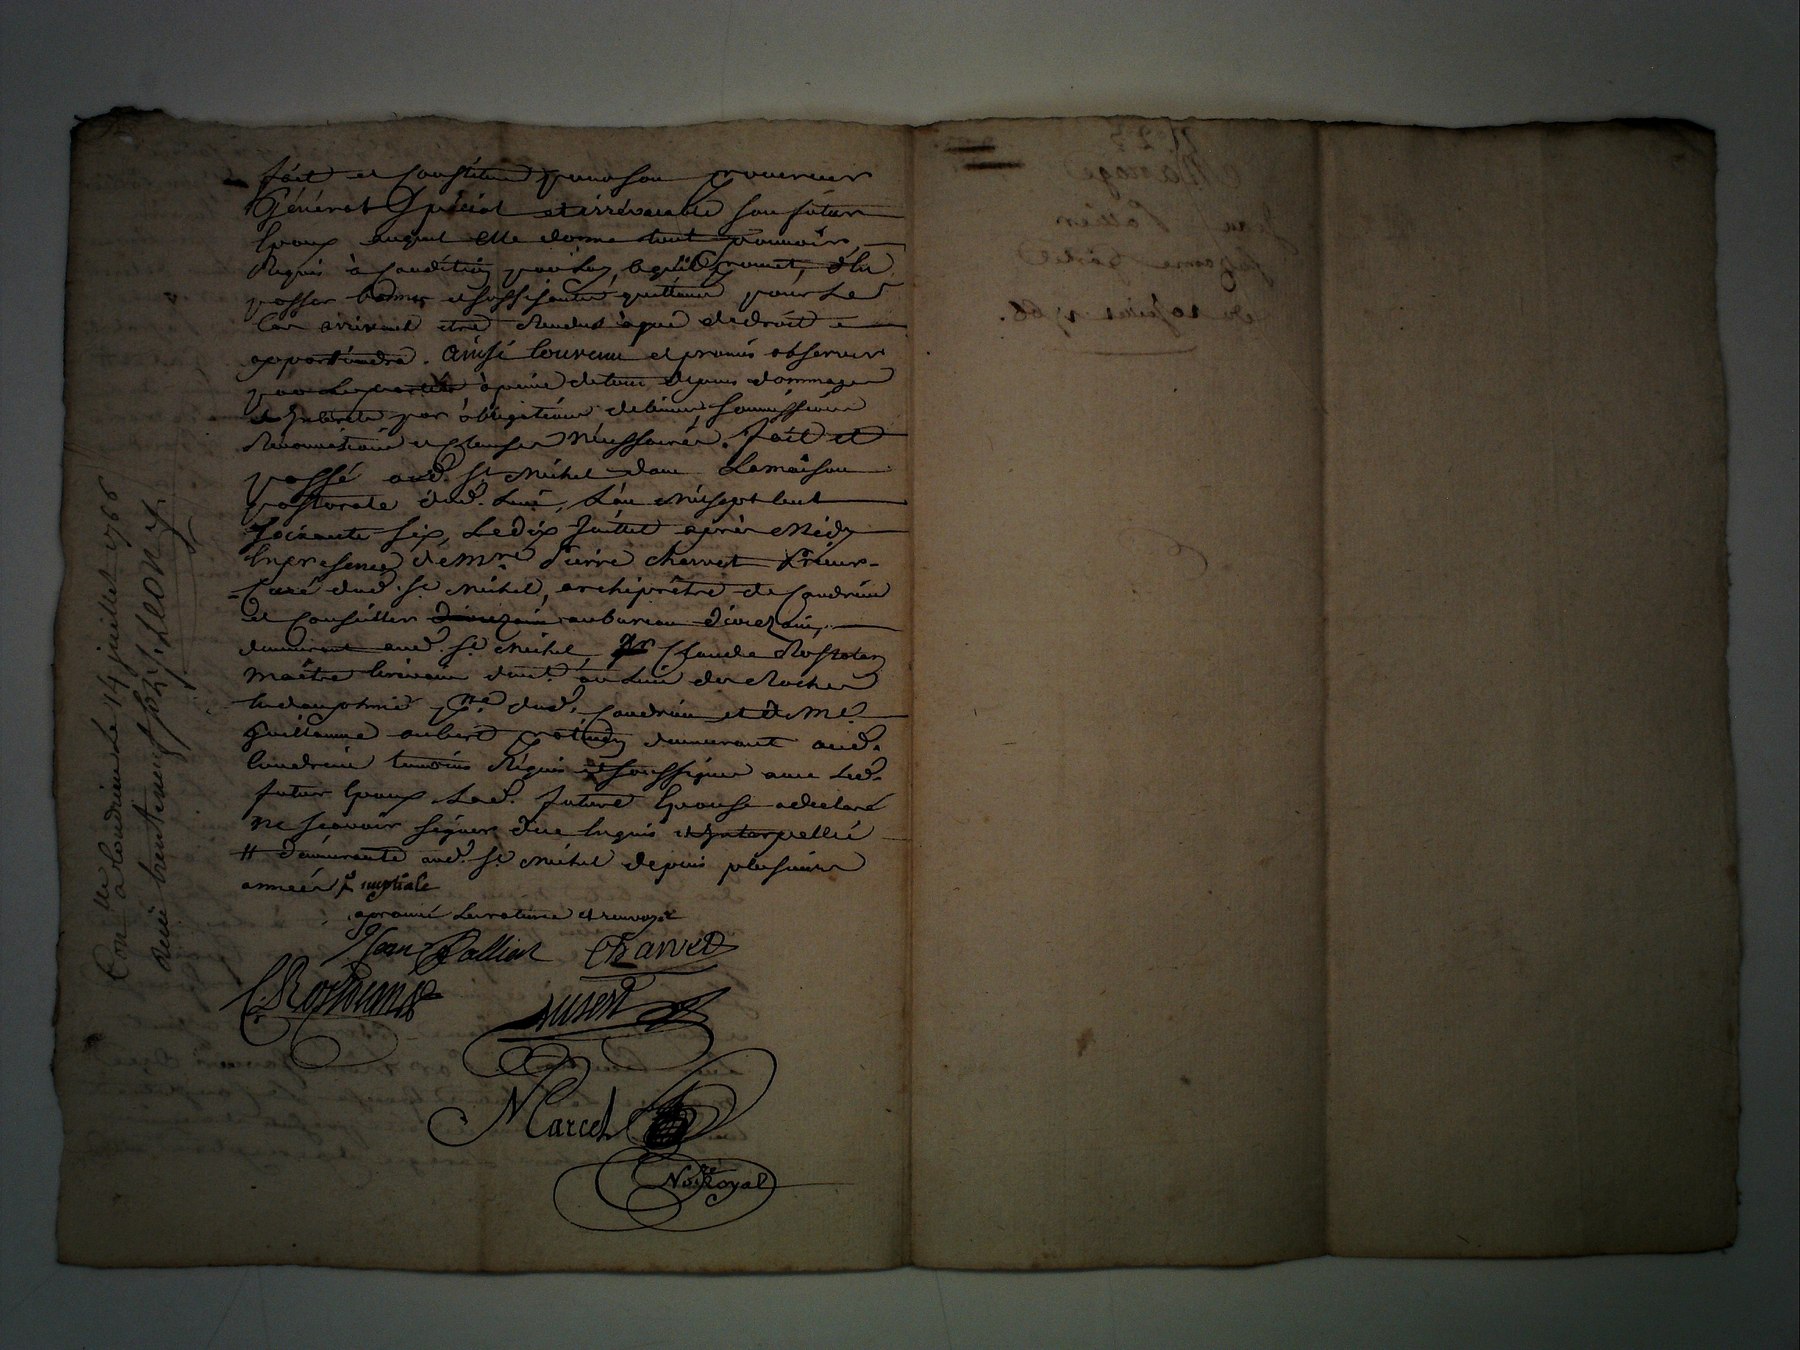 fait et constitué pour son procureur
Général Spécial et irrévocable son futur
Epoux auquel elle donne tout pouvoir
Requis à condition par luy, a promet, de lui
passer bonnes et suffisantes quittance pour le
Cas arrivant etre Rendus à qui de droit
appartiendra. Ainsi Convenu et promis observer
par les parties à peine de tous depens dommages
et Interets par obligations de biens, soumissions
Renonciations et Clauses Nécessaires. fait et
passé aud. St. Michel dans La maison
pastorale dud. Lieu, L'an Mil sept Cent
soixante six, Le dix Juillet après Midy
En presence de Mre. Pierre Charvet Prieur
Curé dud. St Michel, archiprêtre de Condrieu
et Conseiller au bureau
demeurant aud. St. Michel, Sr Claude
Maître Ecrivain dem.t au Lieu des Roches
en dauphiné dud. Condrieu et de Me.
Guillaume aubert praticien demeurant aud.
Condrieu temoins Requis et soussignés avec Led.
futur Epoux Lad. future Epouse a declaré
ne sçavoir signer de ce Enquis et Interpellée
# demeurante aud. St. Michel depuis plusieurs
années nuptiale
aprouvé La rature et renvoye
Jean Pallier Charvet
C. Rostaing
Aubert
Marcel
Nore Royal
Con.lle à Condrieu Le 14 juillet 1766
Reçu
N 23
Mariage
Jean Pallier
Suzanne
du 10 Juillet 1766.